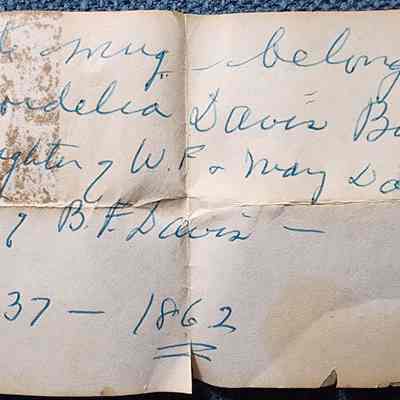 mug - belong
ordelia Davis B
ghter of W. P. & May Da
of B. F. Davis -
37 - 1862